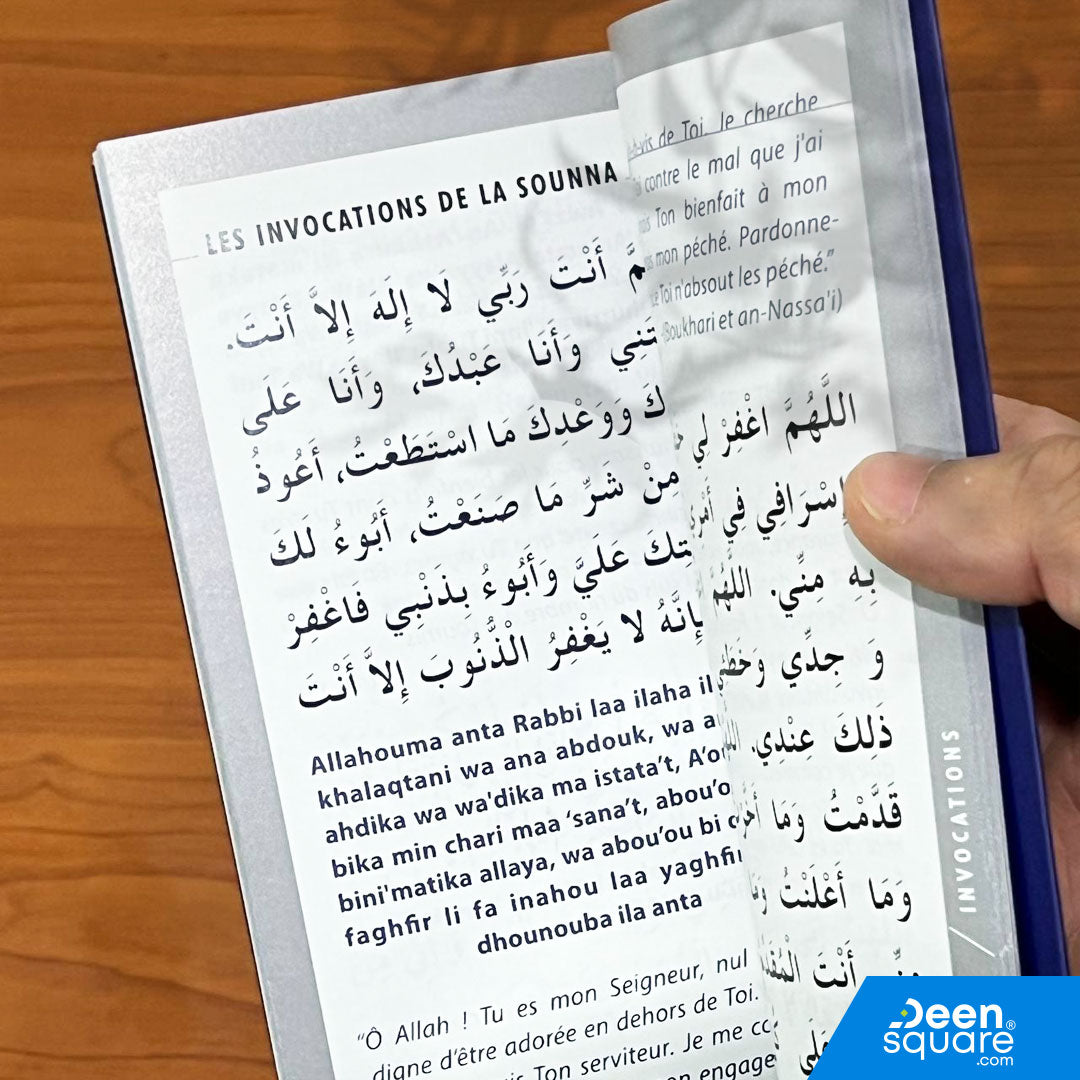 LES INVOCATIONS DE LA SOUNNA
أَنْتَ رَبِّي لَا إِلَهَ إِلاَّ أَنْتَ.
وَأَنَا عَبْدُكَ، وَأَنَا عَلَى
وَوَعْدِكَ مَا اسْتَطَعْتُ، أَعُوذُ
مِنْ شَرِّ مَا صَنَعْتُ، أَبُوءُ لَكَ
عَلَيَّ وَأَبُوءُ بِذَنْبِي فَاغْفِرْ
إِنَّهُ لا يَغْفِرُ الْذُّنُوبَ إِلاَّ أَنْتَ
Allahouma anta Rabbi laa ilaha il
khalaqtani wa ana abdouk, wa a
ahdika wa wa'dika ma istata't, A'o
bika min chari maa ‘sana't, abou'o
bini'matika allaya, wa abou'ou bi
faghfir li fa inahou laa yaghfi
dhounouba ila anta
“Ô Allah ! Tu es mon Seigneur, nul
digne d'être adorée en dehors de Toi.
Ton serviteur. Je me
engage
de Toi. Je cherche
contre le mal que j'ai
Ton bienfait à mon
mon péché. Pardonne-
Toi n'absout les péché.”
Boukhari et an-Nassa'i)
اللَّهُمَّ اغْفِرْ لِي
إِسْرَافِي فِي
بِهِ مِنِّي. اللَّهُمَّ
وَ جِدِّي
ذَلِكَ عِنْدِي.
قَدَّمْتُ وَمَا
وَمَا أَعْلَنْتُ
أَنْتَ
INVOCATIONS
Deen®
square
.com